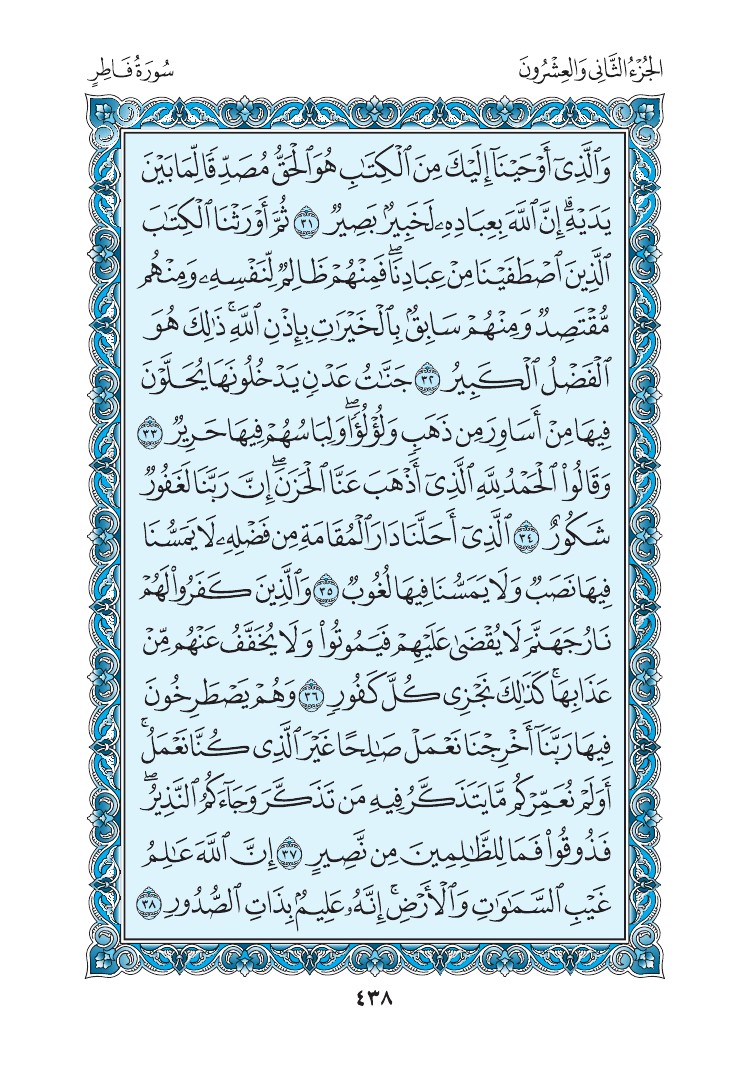 الجُزْءُ الثَّانِي وَالعِشْرُونَ
سُورَةُ فَاطِرٍ
وَٱلَّذِىٓ أَوْحَيْنَآ إِلَيْكَ مِنَ ٱلْكِتَٰبِ هُوَ ٱلْحَقُّ مُصَدِّقًا لِّمَا بَيْنَ
يَدَيْهِ ۗ إِنَّ ٱللَّهَ بِعِبَادِهِۦ لَخَبِيرٌۢ بَصِيرٌ ٣١ ثُمَّ أَوْرَثْنَا ٱلْكِتَٰبَ
ٱلَّذِينَ ٱصْطَفَيْنَا مِنْ عِبَادِنَا ۖ فَمِنْهُمْ ظَالِمٌ لِّنَفْسِهِۦ وَمِنْهُم
مُّقْتَصِدٌ وَمِنْهُمْ سَابِقٌۢ بِٱلْخَيْرَٰتِ بِإِذْنِ ٱللَّهِ ۚ ذَٰلِكَ هُوَ
ٱلْفَضْلُ ٱلْكَبِيرُ ٣٢ جَنَّٰتُ عَدْنٍ يَدْخُلُونَهَا يُحَلَّوْنَ
فِيهَا مِنْ أَسَاوِرَ مِن ذَهَبٍ وَلُؤْلُؤًا ۖ وَلِبَاسُهُمْ فِيهَا حَرِيرٌ ٣٣
وَقَالُوا۟ ٱلْحَمْدُ لِلَّهِ ٱلَّذِىٓ أَذْهَبَ عَنَّا ٱلْحَزَنَ ۖ إِنَّ رَبَّنَا لَغَفُورٌ
شَكُورٌ ٣٤ ٱلَّذِىٓ أَحَلَّنَا دَارَ ٱلْمُقَامَةِ مِن فَضْلِهِۦ لَا يَمَسُّنَا
فِيهَا نَصَبٌ وَلَا يَمَسُّنَا فِيهَا لُغُوبٌ ٣٥ وَٱلَّذِينَ كَفَرُوا۟ لَهُمْ
نَارُ جَهَنَّمَ لَا يُقْضَىٰ عَلَيْهِمْ فَيَمُوتُوا۟ وَلَا يُخَفَّفُ عَنْهُم مِّنْ
عَذَابِهَا ۚ كَذَٰلِكَ نَجْزِى كُلَّ كَفُورٍ ٣٦ وَهُمْ يَصْطَرِخُونَ
فِيهَا رَبَّنَآ أَخْرِجْنَا نَعْمَلْ صَٰلِحًا غَيْرَ ٱلَّذِى كُنَّا نَعْمَلُ ۚ
أَوَلَمْ نُعَمِّرْكُم مَّا يَتَذَكَّرُ فِيهِ مَن تَذَكَّرَ وَجَآءَكُمُ ٱلنَّذِيرُ ۖ
فَذُوقُوا۟ فَمَا لِلظَّٰلِمِينَ مِن نَّصِيرٍ ٣٧ إِنَّ ٱللَّهَ عَٰلِمُ
غَيْبِ ٱلسَّمَٰوَٰتِ وَٱلْأَرْضِ ۚ إِنَّهُۥ عَلِيمٌۢ بِذَاتِ ٱلصُّدُورِ ٣٨
٤٣٨